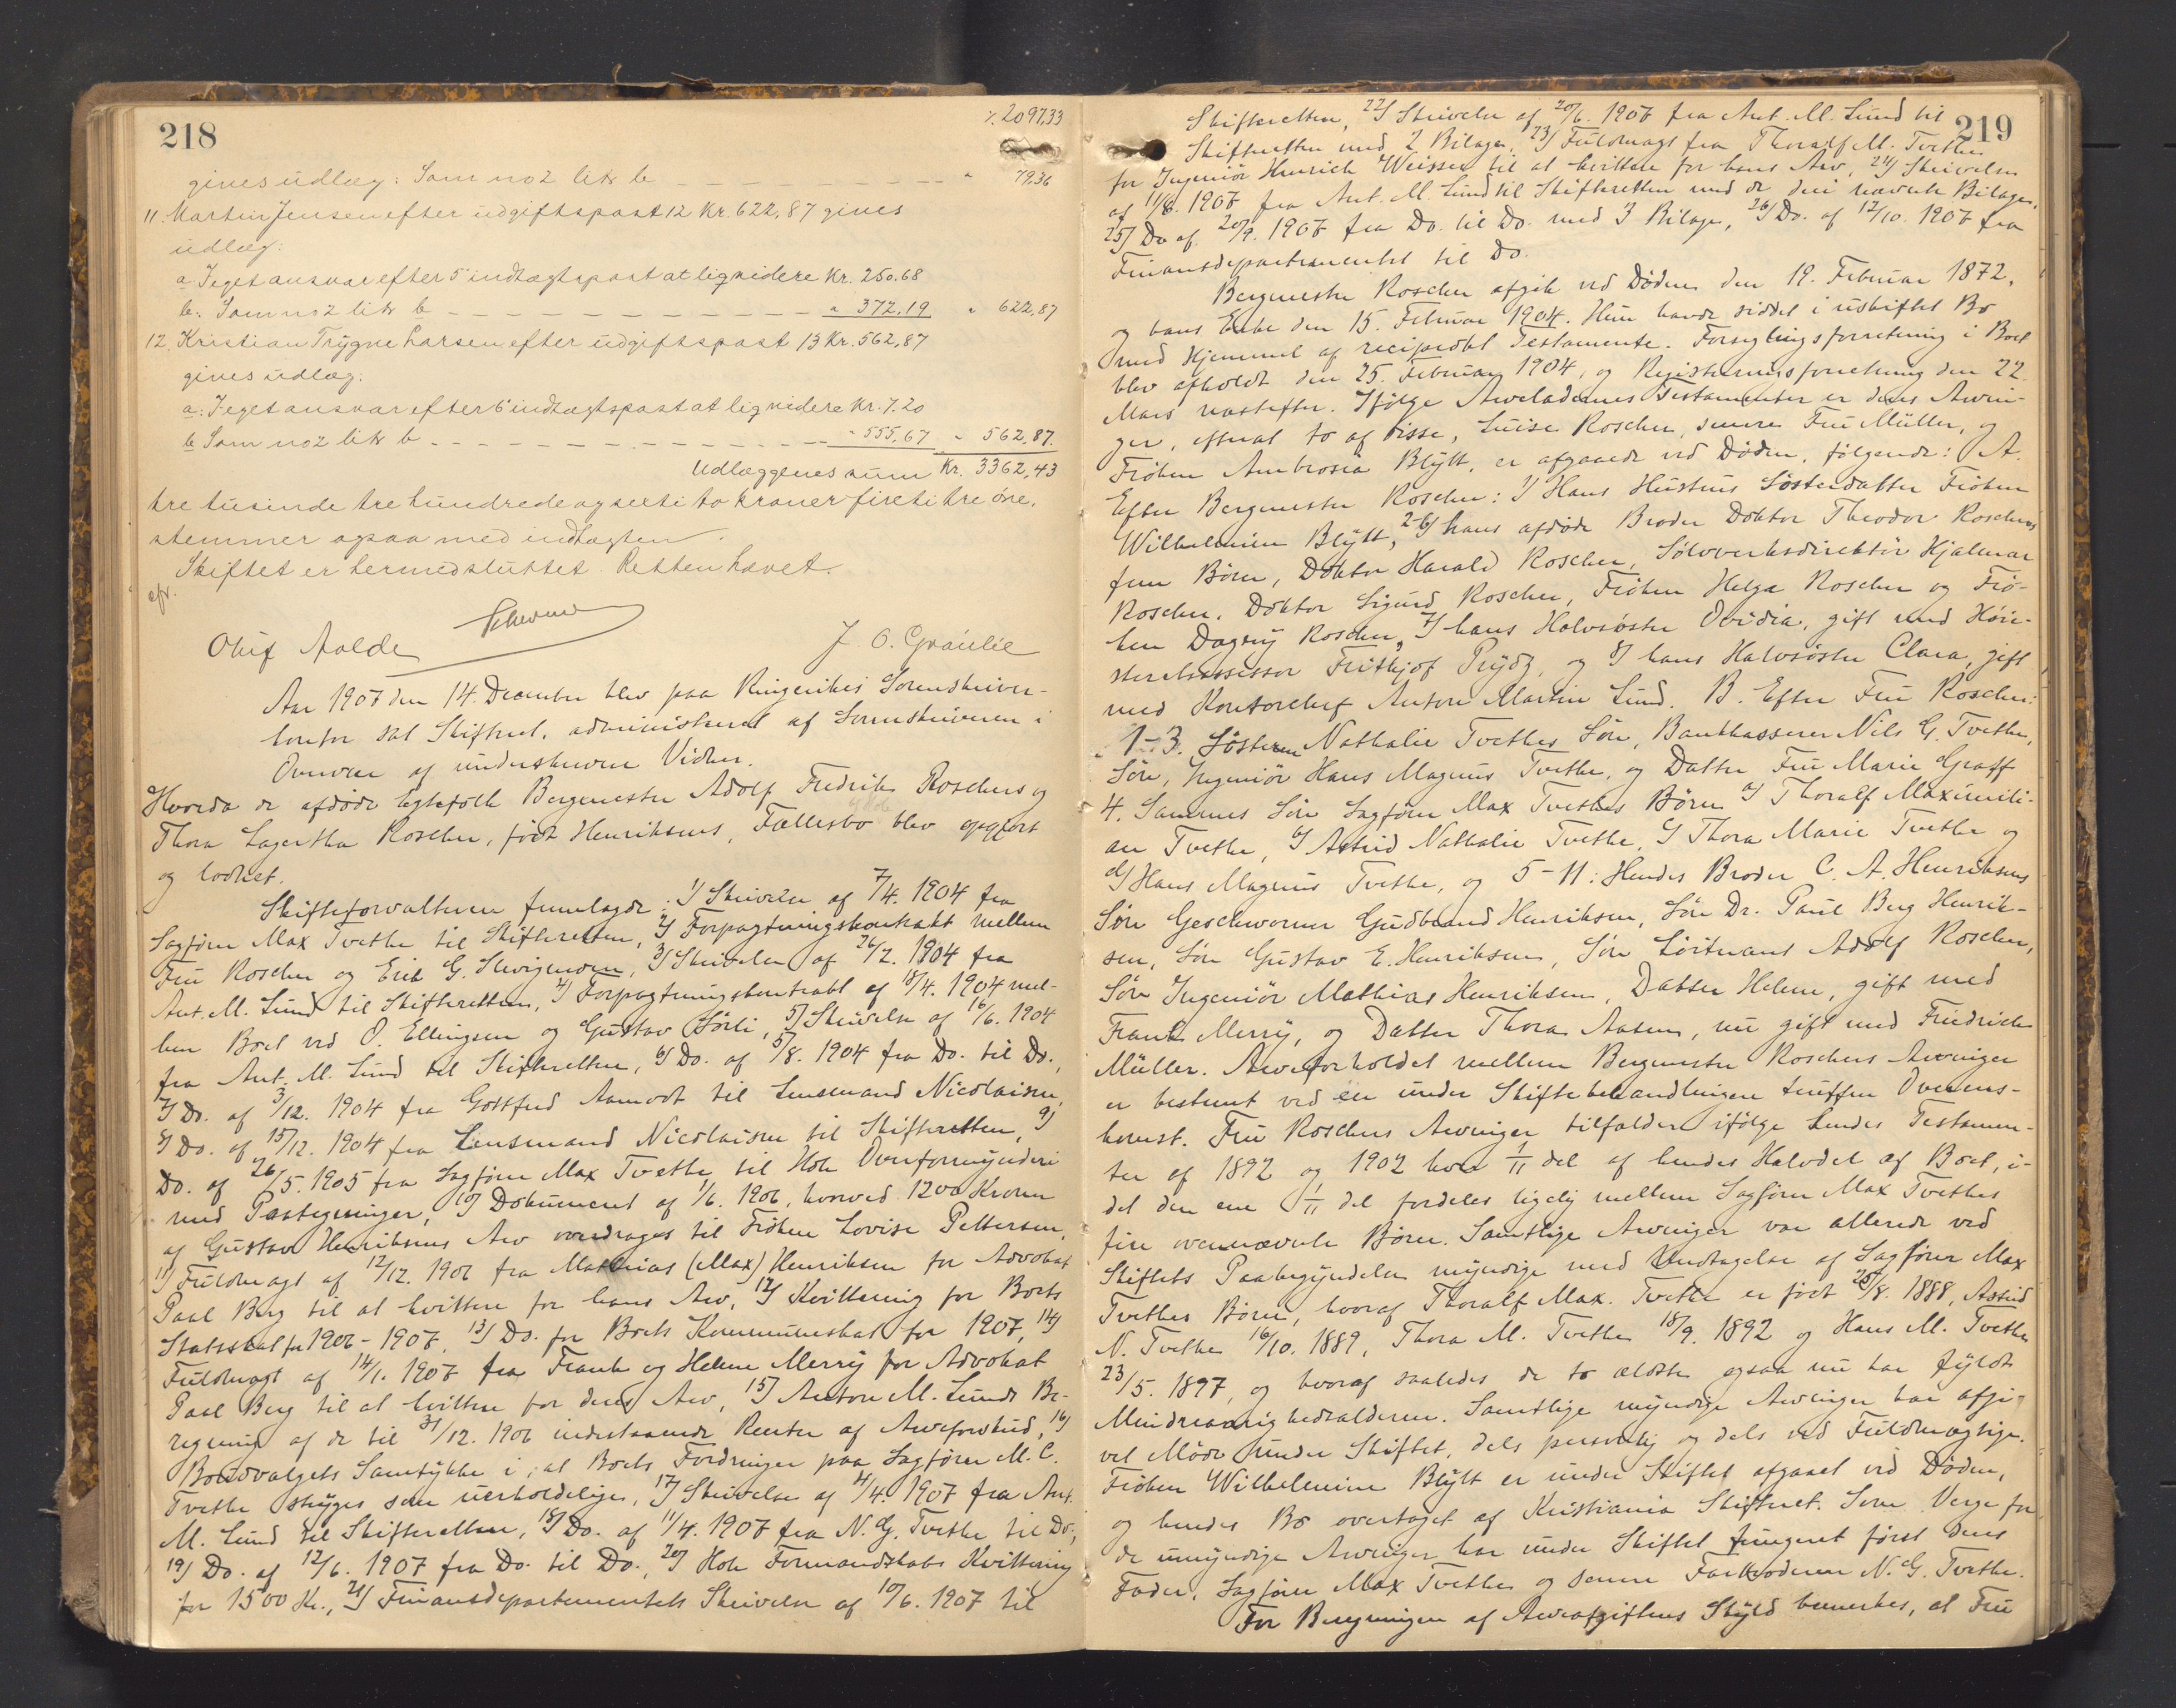 218
%. 2097,33
gives udlæg: Som no 2 litr b " 79,36
11. Martin Jensen efter udgiftspost 12 Kr. 622,87 gives
udlæg:
a I eget ansvar efter 5 indtægtspost at liqvidere Kr. 250.68
b: Som no 2 litr b " 372,19 " 622,87
12. Kristian Trygve Larsen efter udgiftspost 13 Kr. 562,87
gives udlæg:
a: I eget ansvar efter 6 indtægtspost at liqvidere Kr. 7.20
b Som no 2 litr b " 555,67 " 562,87.
Udlæggenes sum Kr. 3362,43
tre tusinde tre hundrede og sexti to kroner firti tre øre,
stemmer ogsaa med indtægten.
Skiftet er hermed sluttet. Retten hævet.
Oluf Aalde J. O. Gräulie
Aar 1907 den 14. December blev paa Ringerikes Sorenskriver-
kontor sat Skifteret, administreret af Sorenskriveren i
Overvær af underskrevne Vidner.
Hvorda de afdøde Egtefolk Bergmester Adolf Fredrik Roschers og
Thora Lagertha Roscher, født Henriksens, Fællesbo blev opgjort
og loddet.
Skifteforvalteren fremlagde: 1) Skrivelse af 7/4. 1904 fra
Sagfører Max Tvethe til Skifteretten, 2) Forpagtningskontrakt mellem
Fru Roscher og Erik G. , 3) Skrivelse af 26/2. 1904 fra
Ant. M. Lund til Skifteretten, 4) Forpagtningskontrakt af 18/4. 1904 mel-
lem Boet ved O. Ellingsen og Gustav Sørli, 5) Skrivelse af 16/6. 1904
fra Ant. M. Lund til Skifteretten, 6) Do. af 5/8. 1904 fra Do. til Do.,
7) Do. af 3/12. 1904 fra Gottfred Aamodt til Lensmand Nicolaisen,
8) Do. af 15/12. 1904 fra Lensmand Nicolaisen til Skifteretten, 9)
Do. af 26/5. 1905 fra Sagfører Max Tvethe til Hole Overformynderi
med Paategninger, 10) Dokument af 1/6. 1906, hvorved 1200 Kroner
af Gustav Henriksens Arv overdrages til Frøken Lovise Pettersen,
11) Fuldmagt af 12/12. 1906 fra Mathias (Max) Henriksen for Advokat
Paal Berg til at kvittere for hans Arv, 12) Kvittering for Boets
Statsskat for 1906-1907, 13) Do. for Boets Kommuneskat for 1907, 14)
Fuldmagt af 14/1. 1907 fra Frank og Helene Merry for Advokat
Paal Berg til at kvittere for deres Arv, 15) Anton M. Lunds Be-
regning af de til 31/12. 1906 indestaaende Renter af Arveforskud, 16)
Bondvalgets Samtykke i, at Boets Fordringer paa Sagfører M. C.
Tvethe stryges som uerholdelige, 17) Skrivelse af 4/4. 1907 fra Ant.
M. Lund til Skifteretten, 18) Do. af 11/4. 1907 fra N. G. Tvethe til Do.,
19) Do. af 12/6. 1907 fra Do. til Do., 20) Hole Formandskabs Kvittering
for 1500 Kr., 21) Finansdepartementets Skrivelse af 10/6. 1907 til
219
Skifteretten, 22) Skrivelse af 20/6. 1907 fra Ant. M. Lund til
Skifteretten med 2 Bilager, 23) Fuldmagt fra Thoralf M. Tvethe
for Ingeniør Heinrich Weisser til at kvittere for hans Arv, 24) Skrivelse
af 11/8. 1907 fra Ant. M. Lund til Skifteretten med de deri nævnte Bilager,
25) Do af 20/9. 1907 fra Do. til Do. med 3 Bilager, 26) Do. af 12/10. 1907 fra
Finansdepartementet til Do.
Bergmester Roscher afgik ved Døden den 19. Februar 1872,
og hans Enke den 15. Februar 1904. Hun havde siddet i uskiftet Bo
med Hjemmel af reciprokt Testamente. Forseglingsforretning i Boet
blev afholdt den 25. Februar 1904, og Registreringsforretning den 22.
Mars næstefter. Ifølge Arveladernes Testamenter er deres Arvin-
ger, efterat to af disse, Luise Roscher, senere Fru Müller, og
Frøken Ambrosia Blytt, er afgaaede ved Døden, følgende: A.
Efter Bergmester Roscher: 1) Hans Hustrus Søsterdatter Frøken
Wilhelmine Blytt, 2-6) hans afdøde Broder Doktor Theodor Roschers
fem Børn, Doktor Harald Roscher, Sølvverksdirektør Hjalmar
Roscher, Doktor Sigurd Roscher, Frøken Helga Roscher og Frø-
ken Dagny Roscher, 7) hans Halvsøster Ovidia, gift med Høie-
steretsassessor Frithjof Prydz, og 8) hans Halvsøster Clara, gift
med Kontorchef Anton Martin Lund. B. Efter Fru Roscher:
1-3. Søsteren Nathalie Tvethes Søn, Bankkasserer Nils G. Tvethe,
Søn, Ingeniør Hans Magnus Tvethe, og Datter Fru Marie Graff
4. Sammes Søn Sagfører Max Tvethes Børn a) Thoralf Maximili-
an Tvethe, b) Astrid Nathalie Tvethe, c) Thora Marie Tvethe og
d) Hans Magnus Tvethe, og 5-11: Hendes Broder C. A. Henriksens
Søn Geschworner Gudbrand Henriksen, Søn Dr. Paul Berg Henrik-
sen, Søn Gustav E. Henriksen, Søn Løitnant Adolf Roscher,
Søn Ingeniør Mathias Henriksen, Datter Helene, gift med
Frank Merry, og Datter Thora Aasen, nu gift med Friedrich
Müller. Arveforholdet mellem Bergmester Roschers Arvinger
er bestemt ved en under Skiftebehandlingen truffen Overens-
komst. Fru Roschers Arvinger tilfalder ifølge hendes Testamen-
ter af 1892 og 1902 hver 1/11 del af hendes Halvdel af Boet, i-
det den ene 1/11 del fordeles ligelig mellem Sagfører Max Tvethes
fire ovennævnte Børn. Samtlige Arvinger var allerede ved
Skiftets Paabegyndelse myndige med Undtagelse af Sagfører Max
Tvethes Børn, hvoraf Thoralf Max. Tvethe er født 25/8. 1888, Astrid
N. Tvethe 16/10. 1889, Thora M. Tvethe 18/9. 1892 og Hans M. Tvethe
23/5. 1897, og hvoraf saaledes de to ældste ogsaa nu har fyldt
Mindreaarighedsalderen. Samtlige myndige Arvinger har afgi-
vet Møde under Skiftet, dels personlig og dels ved Fuldmægtige.
Frøken Wilhelmine Blytt er under Skiftet afgaaet ved Døden,
og hendes Bo overtaget af Kristiania Skifteret. Som Verge for
de umyndige Arvinger har under Skiftet fungeret først deres
Fader, Sagfører Max Tvethe og senere Farbroderen N. G. Tvethe.
For Beregningen af Arveafgiftens Skyld bemerkes, at Fru